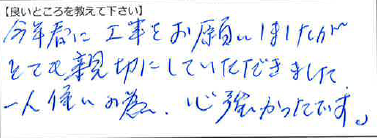 【良いところを教えて下さい】
今年春に工事をお願いしましたが
とても親切にしていただきました
一人住いの為、心強かったです。